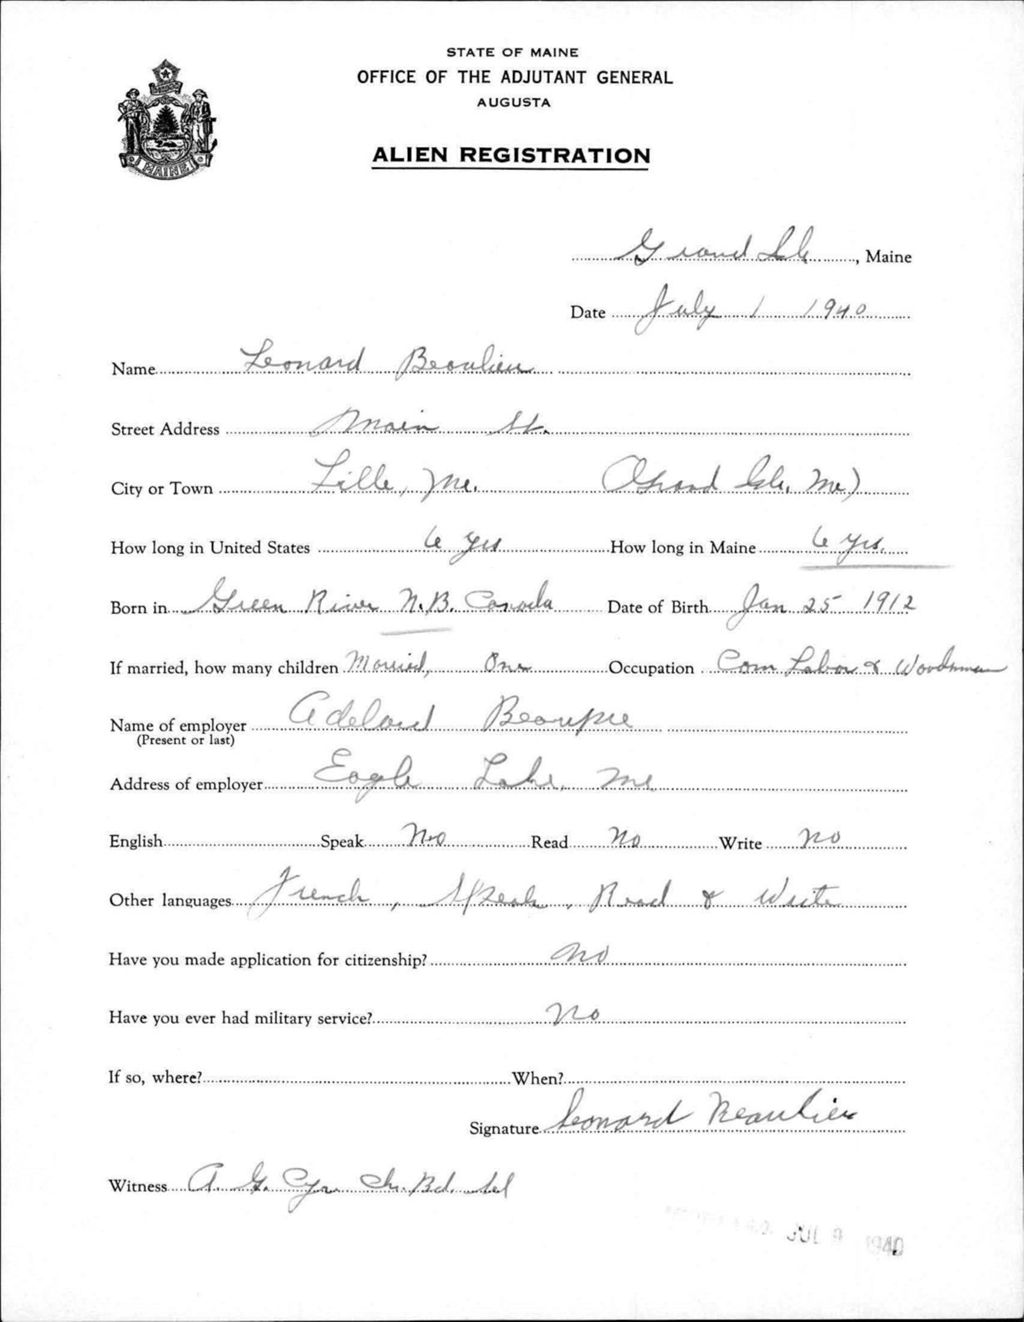 STATE OF MAINE
OFFICE OF THE ADJUTANT GENERAL
AUGUSTA
ALIEN REGISTRATION
MAINE
Grand Isle, Maine
Date July 1 1940
Name Leonard Beaulieu
Street Address Main St.
City or Town Lille, Me. (Grand Isle, Me)
How long in United States 6 yrs How long in Maine 6 yrs.
Born in Green River N.B. Canada Date of Birth Jan 25 1912
If married, how many children Married, One Occupation Com Labor & Woodsman
Name of employer Adelard Beaupre
(Present or last)
Address of employer Eagle Lake, Me
English Speak No Read No Write No
Other languages French, Speak, Read & Write
Have you made application for citizenship? No
Have you ever had military service? No
If so, where? When?
Signature Leonard Beaulieu
Witness A. G. Cyr Ch. Bd. Sel
JUL 9 1940